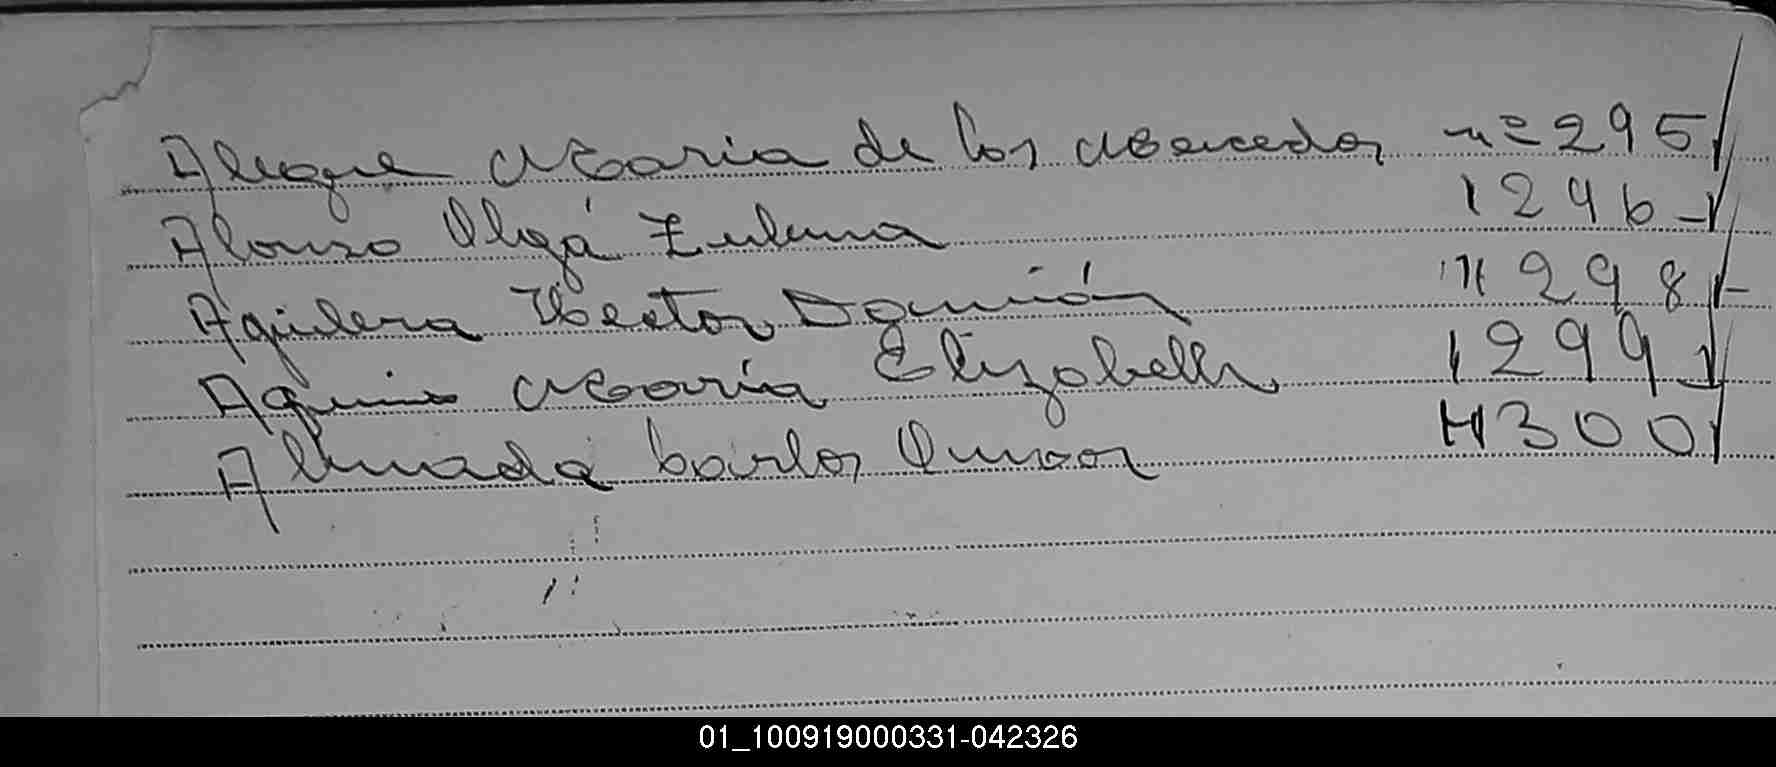 Alegre Maria de los Mercedes nº 295
Alonso Olga Zulema 1296
Aguilera Hector Damián " 298
Aquino Maria Elizabeth 1299
Almada Carlos Omar 300
01_100919000331-042326